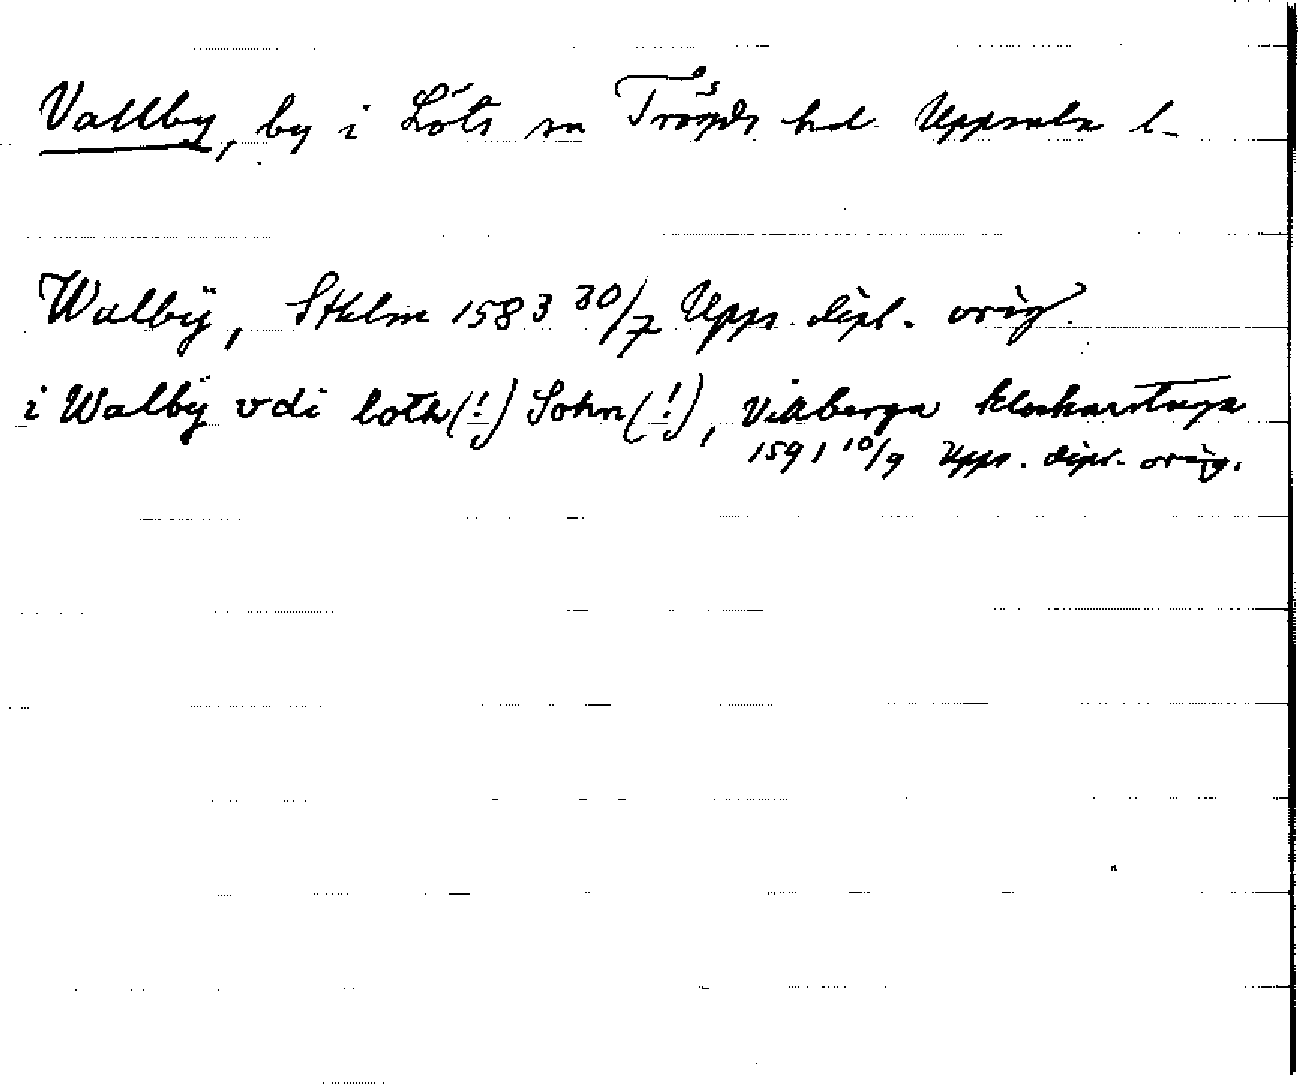 Vallby, by i Löts sn Trögds hd Uppsala l.
Walbÿ, Sthlm 1583 30/7 Upps. dipl. orig.
i Walbÿ vdi loth(!) Sokn(!), Villberga klockarstuga
1591 10/9 Upps. dipl. orig.